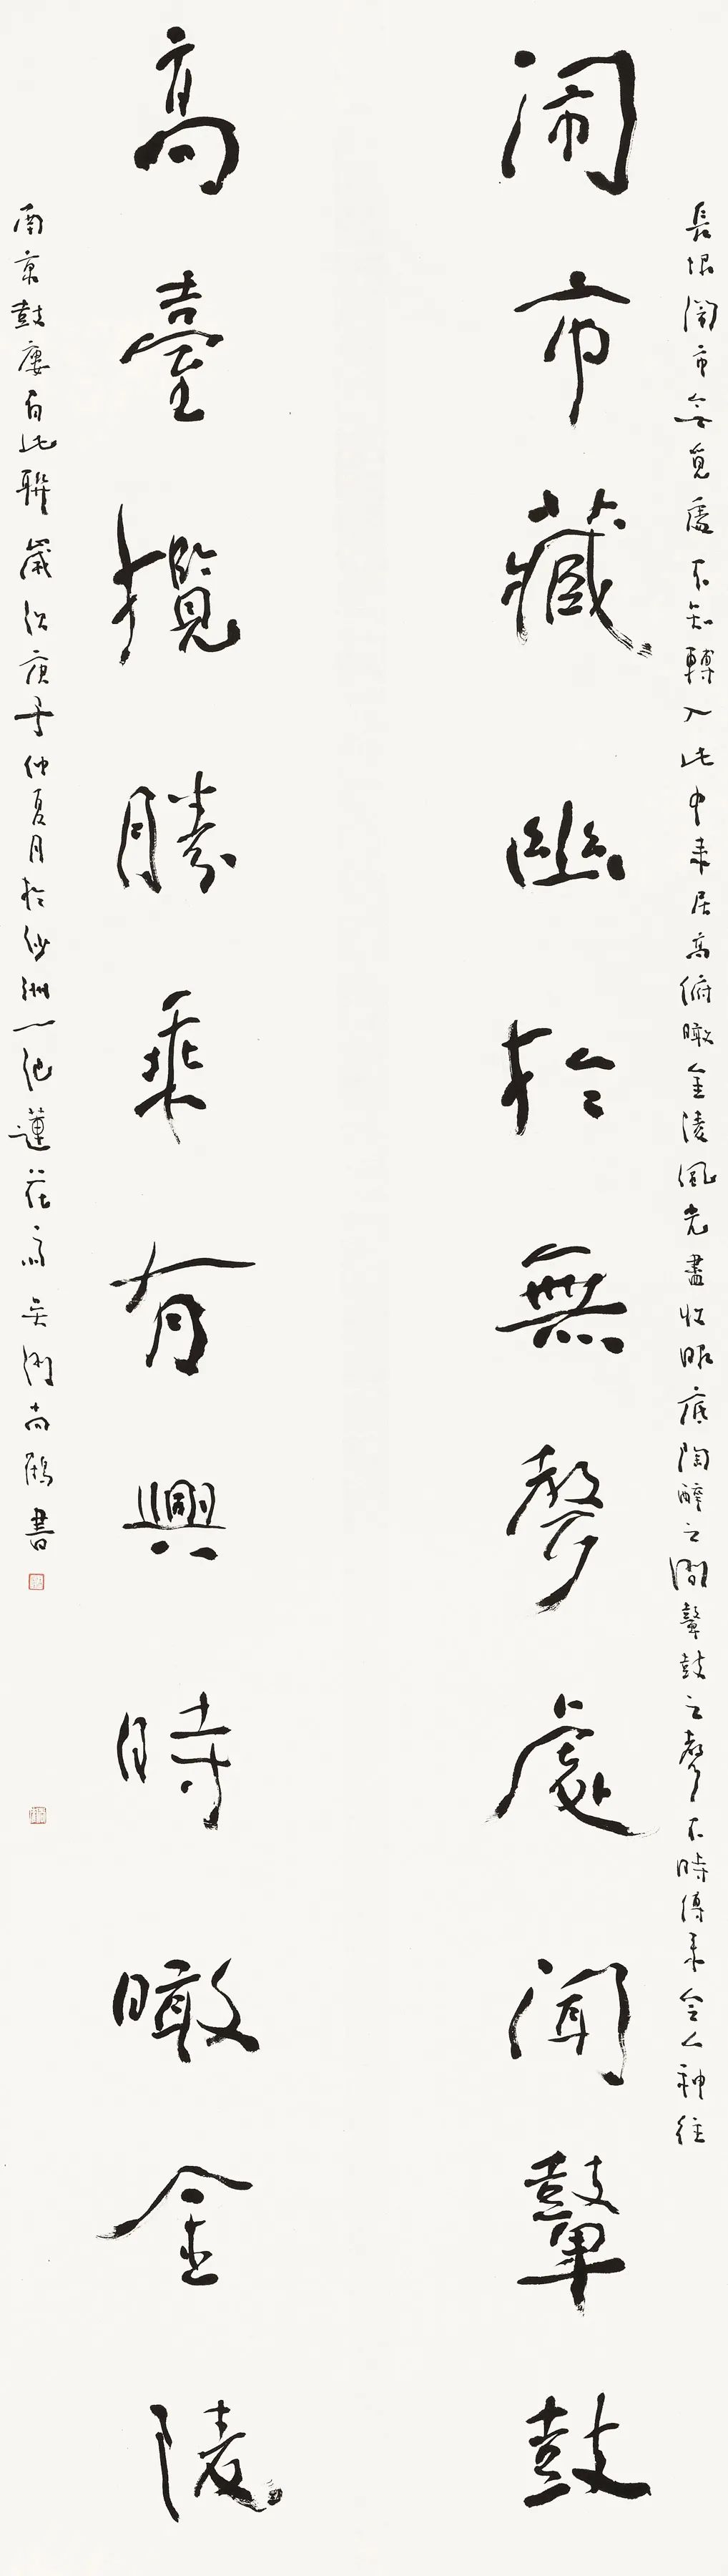 長恨閙市無覓處不知轉入此中来居高俯瞰金陵風光盡收眼底陶醉之間鼙鼓之聲不時傳来令人神往
閙市藏幽於無聲處聞鼙鼓
高臺攬勝乘有興時瞰金陵
南京鼓廔有此聯歲次庚子仲夏月於沙洲一池蓮花齋 尚鵬書